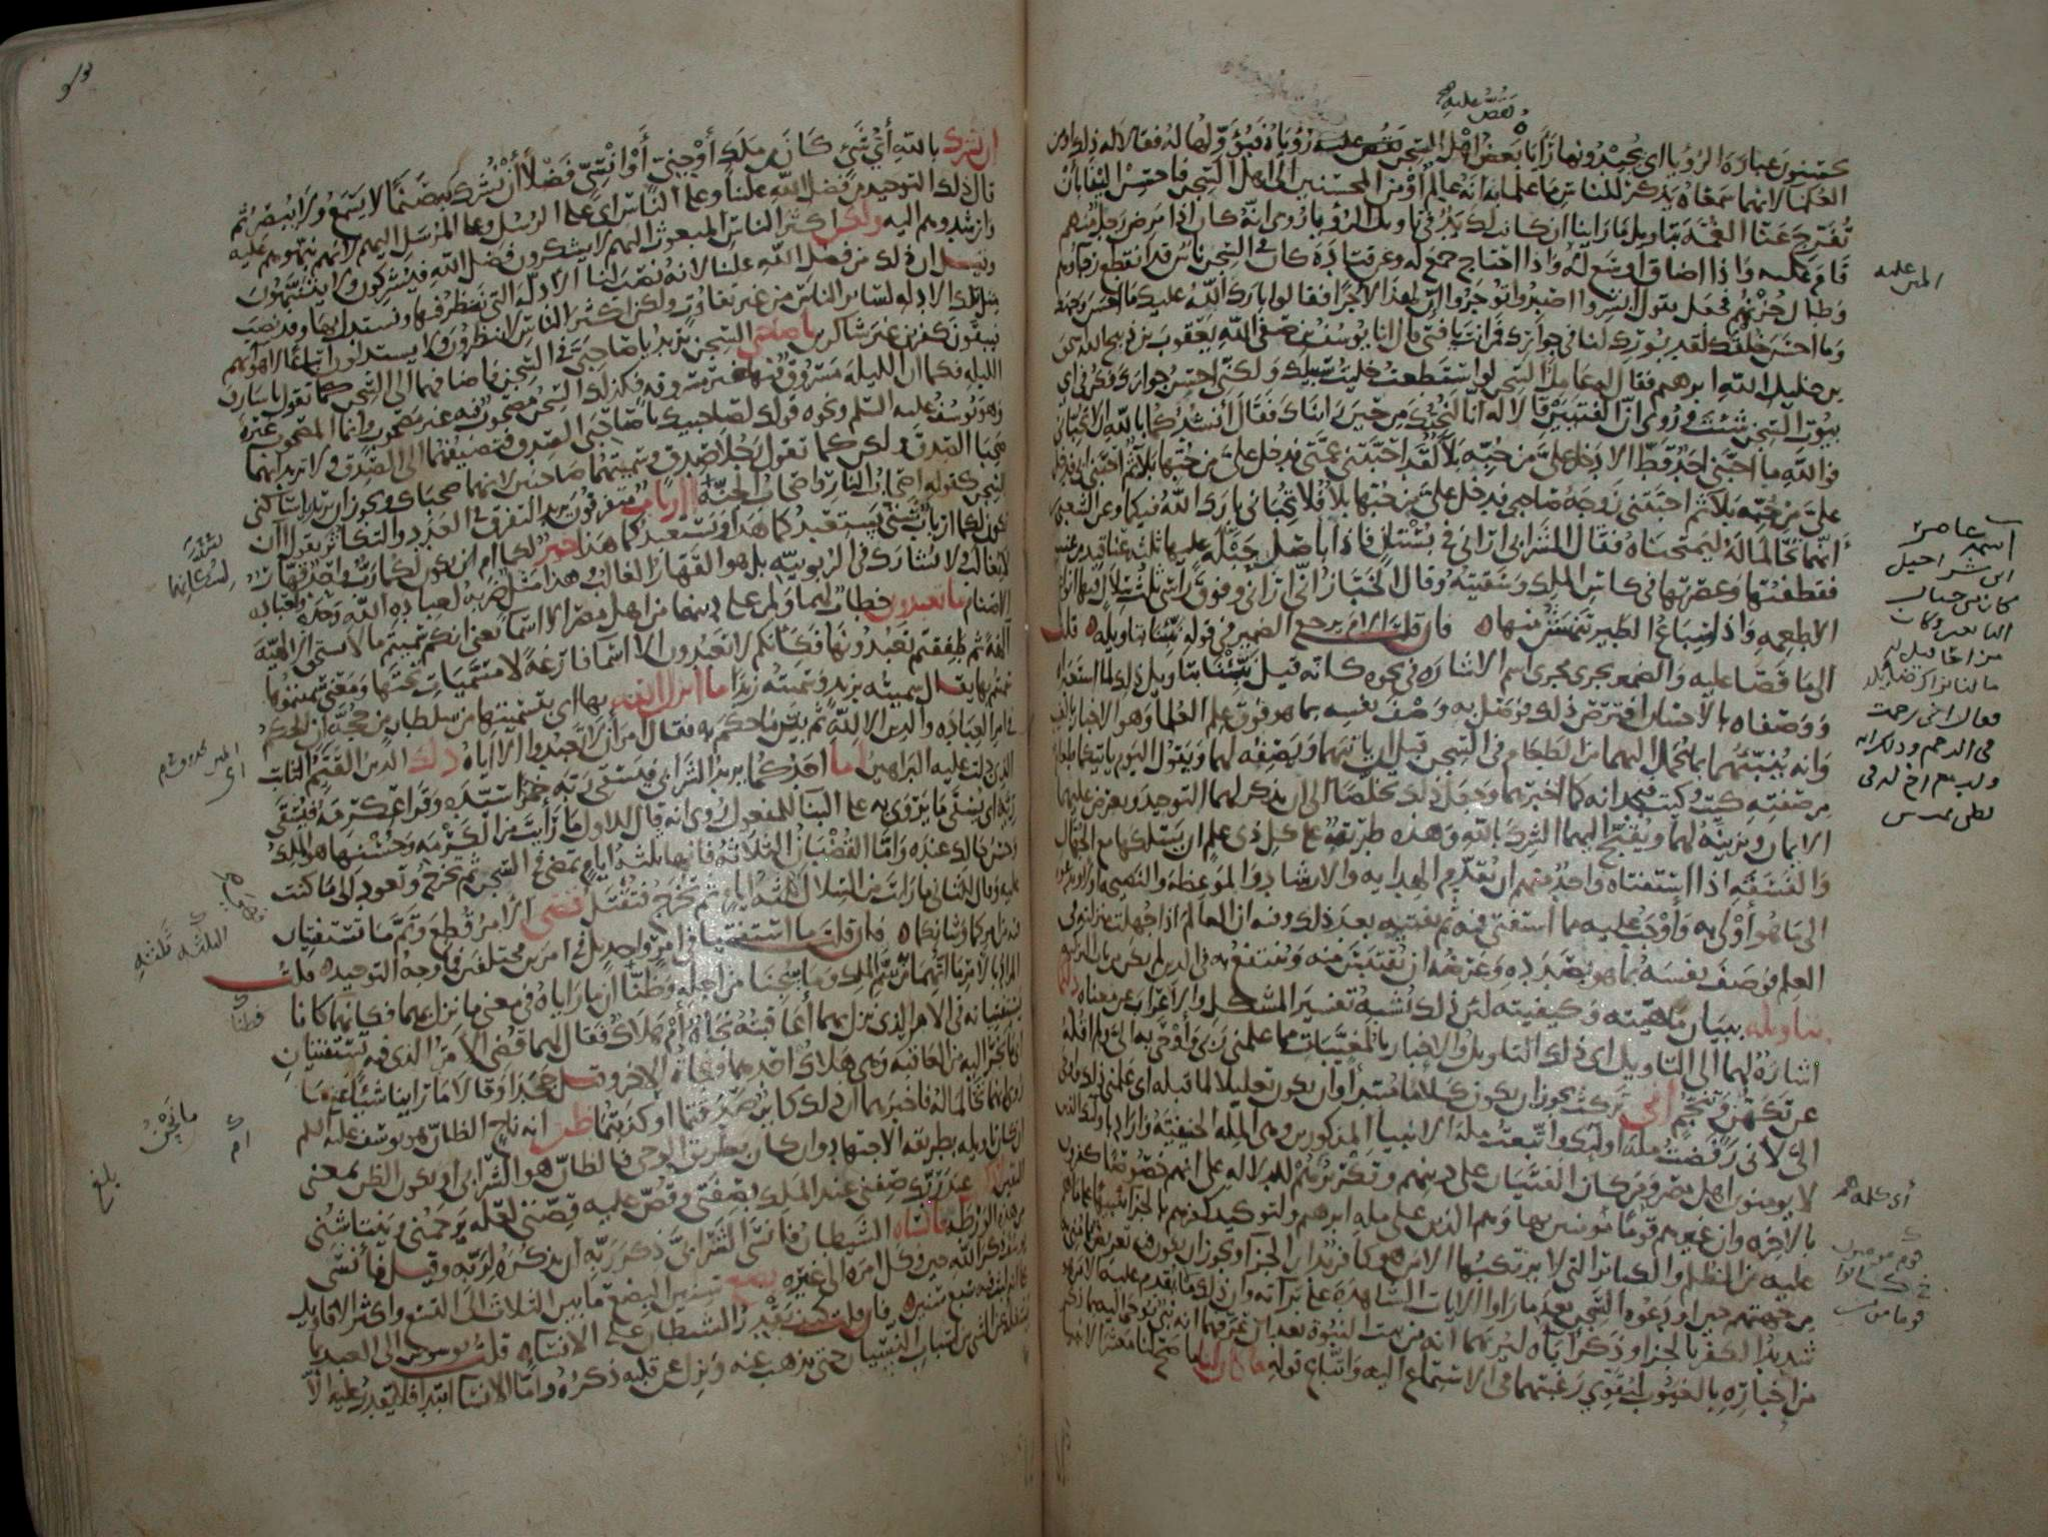 يحسنون عبارة الرؤيا اى يجيدونها رأيا بعض اهل السجن يقص عليه رؤياه فيؤولها له فقالا له ذلك او من
العلما لانهما سمعاه يذكر للناس ما علما به انه عالم او من المحسنين الى اهل السجن فاحسن الينا بأن
تفرج عنا الغمة بتاويل ما رأينا ان كانت لك يد فى تاويل الرؤيا روى انه كان اذا مرض رجل منهم
قام عليه واذا اضاق اوسع له واذا احتاج جمع له وعن قتادة كان فى السجن ناس قد انقطع رجاؤهم
وطال حزنهم فجعل يقول ابشروا اصبروا تؤجروا ان لهذا لاجرا فقالوا بارك الله عليك ما احسن وجهك
وما احسن خلقك لقد بورك لنا فى جوارك فمن انت يا فتى قال انا يوسف بن صفى الله يعقوب بن ذبيح الله اسحق
بن خليل الله ابرهيم فقال له عامل السجن لو استطعت خليت سبيلك ولكنى احسن جوارك فكن فى اى
بيوت السجن شئت وروى ان الفتيين قالا له انا لنحبك من حين رأيناك فقال انشدكما بالله ان لا تحبانى
فوالله ما احبنى احد قط الا دخل على من حبه بلا لقد احبتنى عمتى فدخل على من حبها بلا ثم احبنى ابى فدخل
على من حبه بلا ثم احبتنى زوجة صاحبى فدخل على من حبها بلا فلا تحبانى بارك الله فيكما وعن الشعبى
انهما تحالما له ليمتحناه فقال الشرابى انى ارانى فى بستان فاذا باصل حبلة عليها ثلثة عناقيد من عنب
فقطفتها وعصرتها فى كاس الملك وسقيته وقال الخباز انى ارانى وفوق راسى ثلث سلال فيها انواع
الاطعمه واذا سباع الطير تنهش منها فان قلت الام يرجع الضمير فى قوله نبئنا بتاويله قلت
الى ما قصا عليه والضمير يجرى مجرى اسم الاشارة فى نحوه كانه قيل نبئنا بتاويل ذلك لما استعبراه
ووصفاه بالاحسان افترض ذلك فوصل به وصف نفسه بما هو فوق علم العلما وهو الاخبار بالغيب
وانه ينبئهما بما يحمل اليهما من الطعام فى السجن قبل ان ياتيهما ويصفه لهما ويقول اليوم ياتيكما طعام
من صفته كيت وكيت فيجدانه كما اخبرهما وجعل ذلك تخلصا الى ان يذكر لهما التوحيد ويعرض عليهما
الايمان ويزينه لهما ويقبح اليهما الشرك بالله وهذه طريقة على كل ذى علم ان يسلكها مع الجهال
والفسقة اذا استفتاه واحد منهم ان يقدم الهداية والارشاد والموعظة والنصيحة
الى ما هو اولى به واوجب عليه مما استفتى فيه ثم يفتيه بعد ذلك وفيه ان العالم اذا جهلت منزلته فى
العلم فوصف نفسه بما هو بصدده وغرضه ان يقتبس منه وينتفع به فى الدين لم يكن من باب التزكيه
بتاويله ببيان ماهيته وكيفيته لان ذلك يشبه تفسير المشكل والاعراب عن معناه ذلكما
اشارة لهما الى التاويل اى ذلك التاويل والاخبار بالمغيبات مما علمنى ربى واوحى به الى ولم اقله
عن تكهن وتنجم انى تركت يجوز ان يكون كلاما مبتدأ وان يكون تعليلا لما قبله اى علمنى ذلك واوحى
الى لانى رفضت ملة اولئك واتبعت ملة الانبيا المذكورين وهى الملة الحنيفية واراد باولئك الذين
لا يومنون اهل مصر ومن كان الفتيان على دينهم وتكريرهم للدلالة على انهم خصوصا كفرون
بالاخرة وان غيرهم قوما مؤمنين بها وهم الذين على ملة ابرهيم ولتوكيد كفرهم بالجزا تنبيها على ما هم
عليه من الظلم والكبائر التى لا يرتكبها الا من هو كافر بدار الجزا ويجوز ان يكون فيه تعريض بما منى به
من جهتهم حين اودعوه السجن بعد ما راوا الايات الشاهدة على براته وان ذلك ما لا يقدم عليه الا من هو
شديد الكفر بالجزا وذكر اباه ليريهما انه من بيت النبوة بعد ان عرفهما انه نبى يوحى اليه بما ذكر
من اخباره بالغيوب ليقوى رغبتهما فى الاستماع اليه واتباع قوله ما كان لنا ما صح لنا معشر الانبيا
يقص عليه
اسمه عامر
ابن شراحيل
كان من
التابعين وكان
ان نشرك بالله أى شئ كان من ملك أو جنى أو انسى فضلا أن نشرك به صنما لا يسمع ولا يبصر ثم
قال ذلك التوحيد من فضل الله علينا وعلى الناس اى على الرسل وعلى المرسل اليهم لانهم نبهوهم عليه
وارشدوهم اليه ولكن اكثر الناس المبعوث اليهم لا يشكرون فضل الله فيشركون ولا ينتبهون
وقيل ان ذلك من فضل الله علينا لانه نصب لنا الادلة التى ننظر فيها ونستدل بها وقد نصب
مثل تلك الادلة لسائر الناس من غير تفاوت ولكن اكثر الناس لا ينظرون ولا يستدلون اتباعا لاهوائهم
فيبقون كفرين غير شاكرين يا صاحبى السجن يريد يا صاحبى فى السجن فاضافهما الى السجن كما تقول يا سارق
الليلة فكما ان الليلة مسروق فيها غير مسروقة فكذلك السجن مصحوب فيه غير مصحوب وانما المصحوب غيره
وهو يوسف عليه السلم ونحوه قولك لصاحبيك يا صاحبى الصدق فتضيفهما الى الصدق ولا تريد انهما
صحبا الصدق ولكن كما تقول رجلا صدق وسميتهما صاحبين لانهما صحباك ويجوز ان يريد يا ساكنى
السجن كقوله اصحاب النار واصحاب الجنة أارباب متفرقون يريد التفرق فى العدد والتكاثر يقول أأن
تكون لكما ارباب شتى يستعبدكما هذا ويستعبدكما هذا خير لكما ام ان يكون لكما رب واحد قهار
لا يغالب ولا يشارك فى الربوبيه بل هو القهار الغالب وهذا مثل ضربه لعبادة الله وحده ولعبادة
الاصنام ما تعبدون خطاب لهما ولمن على دينهما من اهل مصر الا اسما يعنى انكم سميتم ما لا يستحق الالهية
الهة ثم طفقتم تعبدونها فكأنكم لا تعبدون الا اسما فارغة لا مسميات تحتها ومعنى سميتموها
سميتم بها يقال سميته بزيد وسميته زيدا ما انزل الله بها اى بتسميتها من سلطان من حجة ان الحكم
فى امر العبادة والدين الا لله ثم بين ما حكم به فقال امر أن لا تعبدوا الا اياه ذلك الدين القيم الثابت
الذى دلت عليه البراهين اما احدكما يريد الشرابى فيسقى ربه خمرا سيده وقرا عكرمة فيسقى
ربه اى يسقى ما يروى به على البنا للمفعول روى انه قال للاول ما رأيت من الكرمة وحسنها هو الملك
وحسن حالك عنده واما القضبان الثلاثة فانها ثلثة ايام تمضى فى السجن ثم تخرج وتعود الى ما كنت
عليه وقال للثانى ما رايت من السلال ثلثة ايام ثم تخرج فتقتل قضى الامر قطع وتم ما تستفتيان
فيه من امركما وشانكما فان قلت ما استفتيا فى امر واحد بل فى امرين مختلفين فما وجه التوحيد قلت
المراد بالامر ما اتهما به من سم الملك وما سجنا من اجله وظنا ان ما راياه فى معنى ما نزل بهما فكانهما كانا
يستفتيانه فى الامر الذى نزل بهما أعاقبته نجاة أم هلاك فقال لهما قضى الامر الذى فيه تستفتيان
اى ما يجر اليه من العاقبة وهى هلاك احدهما ونجاة الاخر وقيل جحدا وقالا ما راينا شيئا على ما
روى انهما تحالما له فاخبرهما ان ذلك كاين صدقتما او كذبتما ظن انه ناج الظان هو يوسف عليه السلم
ان كان تاويله بطريق الاجتهاد وان كان بطريق الوحى فالظان هو الشرابى او يكون الظن بمعنى
اليقين اذكرنى عند ربك صفنى عند الملك بصفتى وقص عليه قصتى لعله يرحمنى وينتاشنى
من هذه الورطة فانساه الشيطان فانسى الشرابى ذكر ربه ان يذكره لربه وقيل فانسى
يوسف ذكر الله حين وكل امره الى غيره بضع سنين البضع ما بين الثلاث الى التسع واكثر الاقاويل
على انه لبث فيه سبع سنين فان قلت كيف يقدر الشيطان على الانسا قلت يوسوس الى العبد بما
يشغله عن الشى من اسباب النسيان حتى يذهب عنه ويزل عن قلبه ذكره واما الانسا ابتدا فلا يقدر عليه الا
بلغ